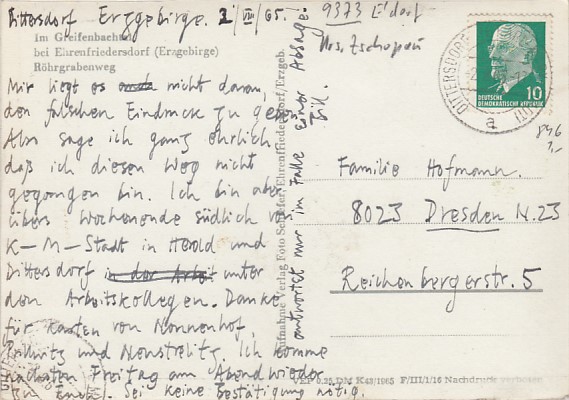 Dittersdorf Erzgebirge. 2/VIII/65.
Im Greifenbachtal
bei Ehrenfriedersdorf (Erzgebirge)
Röhrgrabenweg
Mir liegt es nicht daran,
den falschen Eindruck zu geben
Also sage ich ganz ehrlich
daß ich diesen Weg nicht
gegangen bin. Ich bin aber
übers Wochenende südlich von
K-M-Stadt in Herold und
Dittersdorf in der Arbeit unter
den Arbeitskollegen. Danke
für Karten von Nonnenhof,
Pillnitz und Neustrelitz. Ich komme
nächsten Freitag am Abend wieder
zu Euch. Sei keine Bestätigung nötig.
antwortet nur im Falle einer Absage!
Aufnahme Verlag Foto Ehrenfriedersdorf/Erzgeb.
9373 E'dorf
Krs. Zschopau
DITTERSDORF
a
10
DEUTSCHE
DEMOKRATISCHE REPUBLIK
846
1,-
Familie Hofmann.
8023 Dresden N.23
Reichenbergerstr. 5
VEP 0,25 DM K43/1965 F/III/1/16 Nachdruck verboten